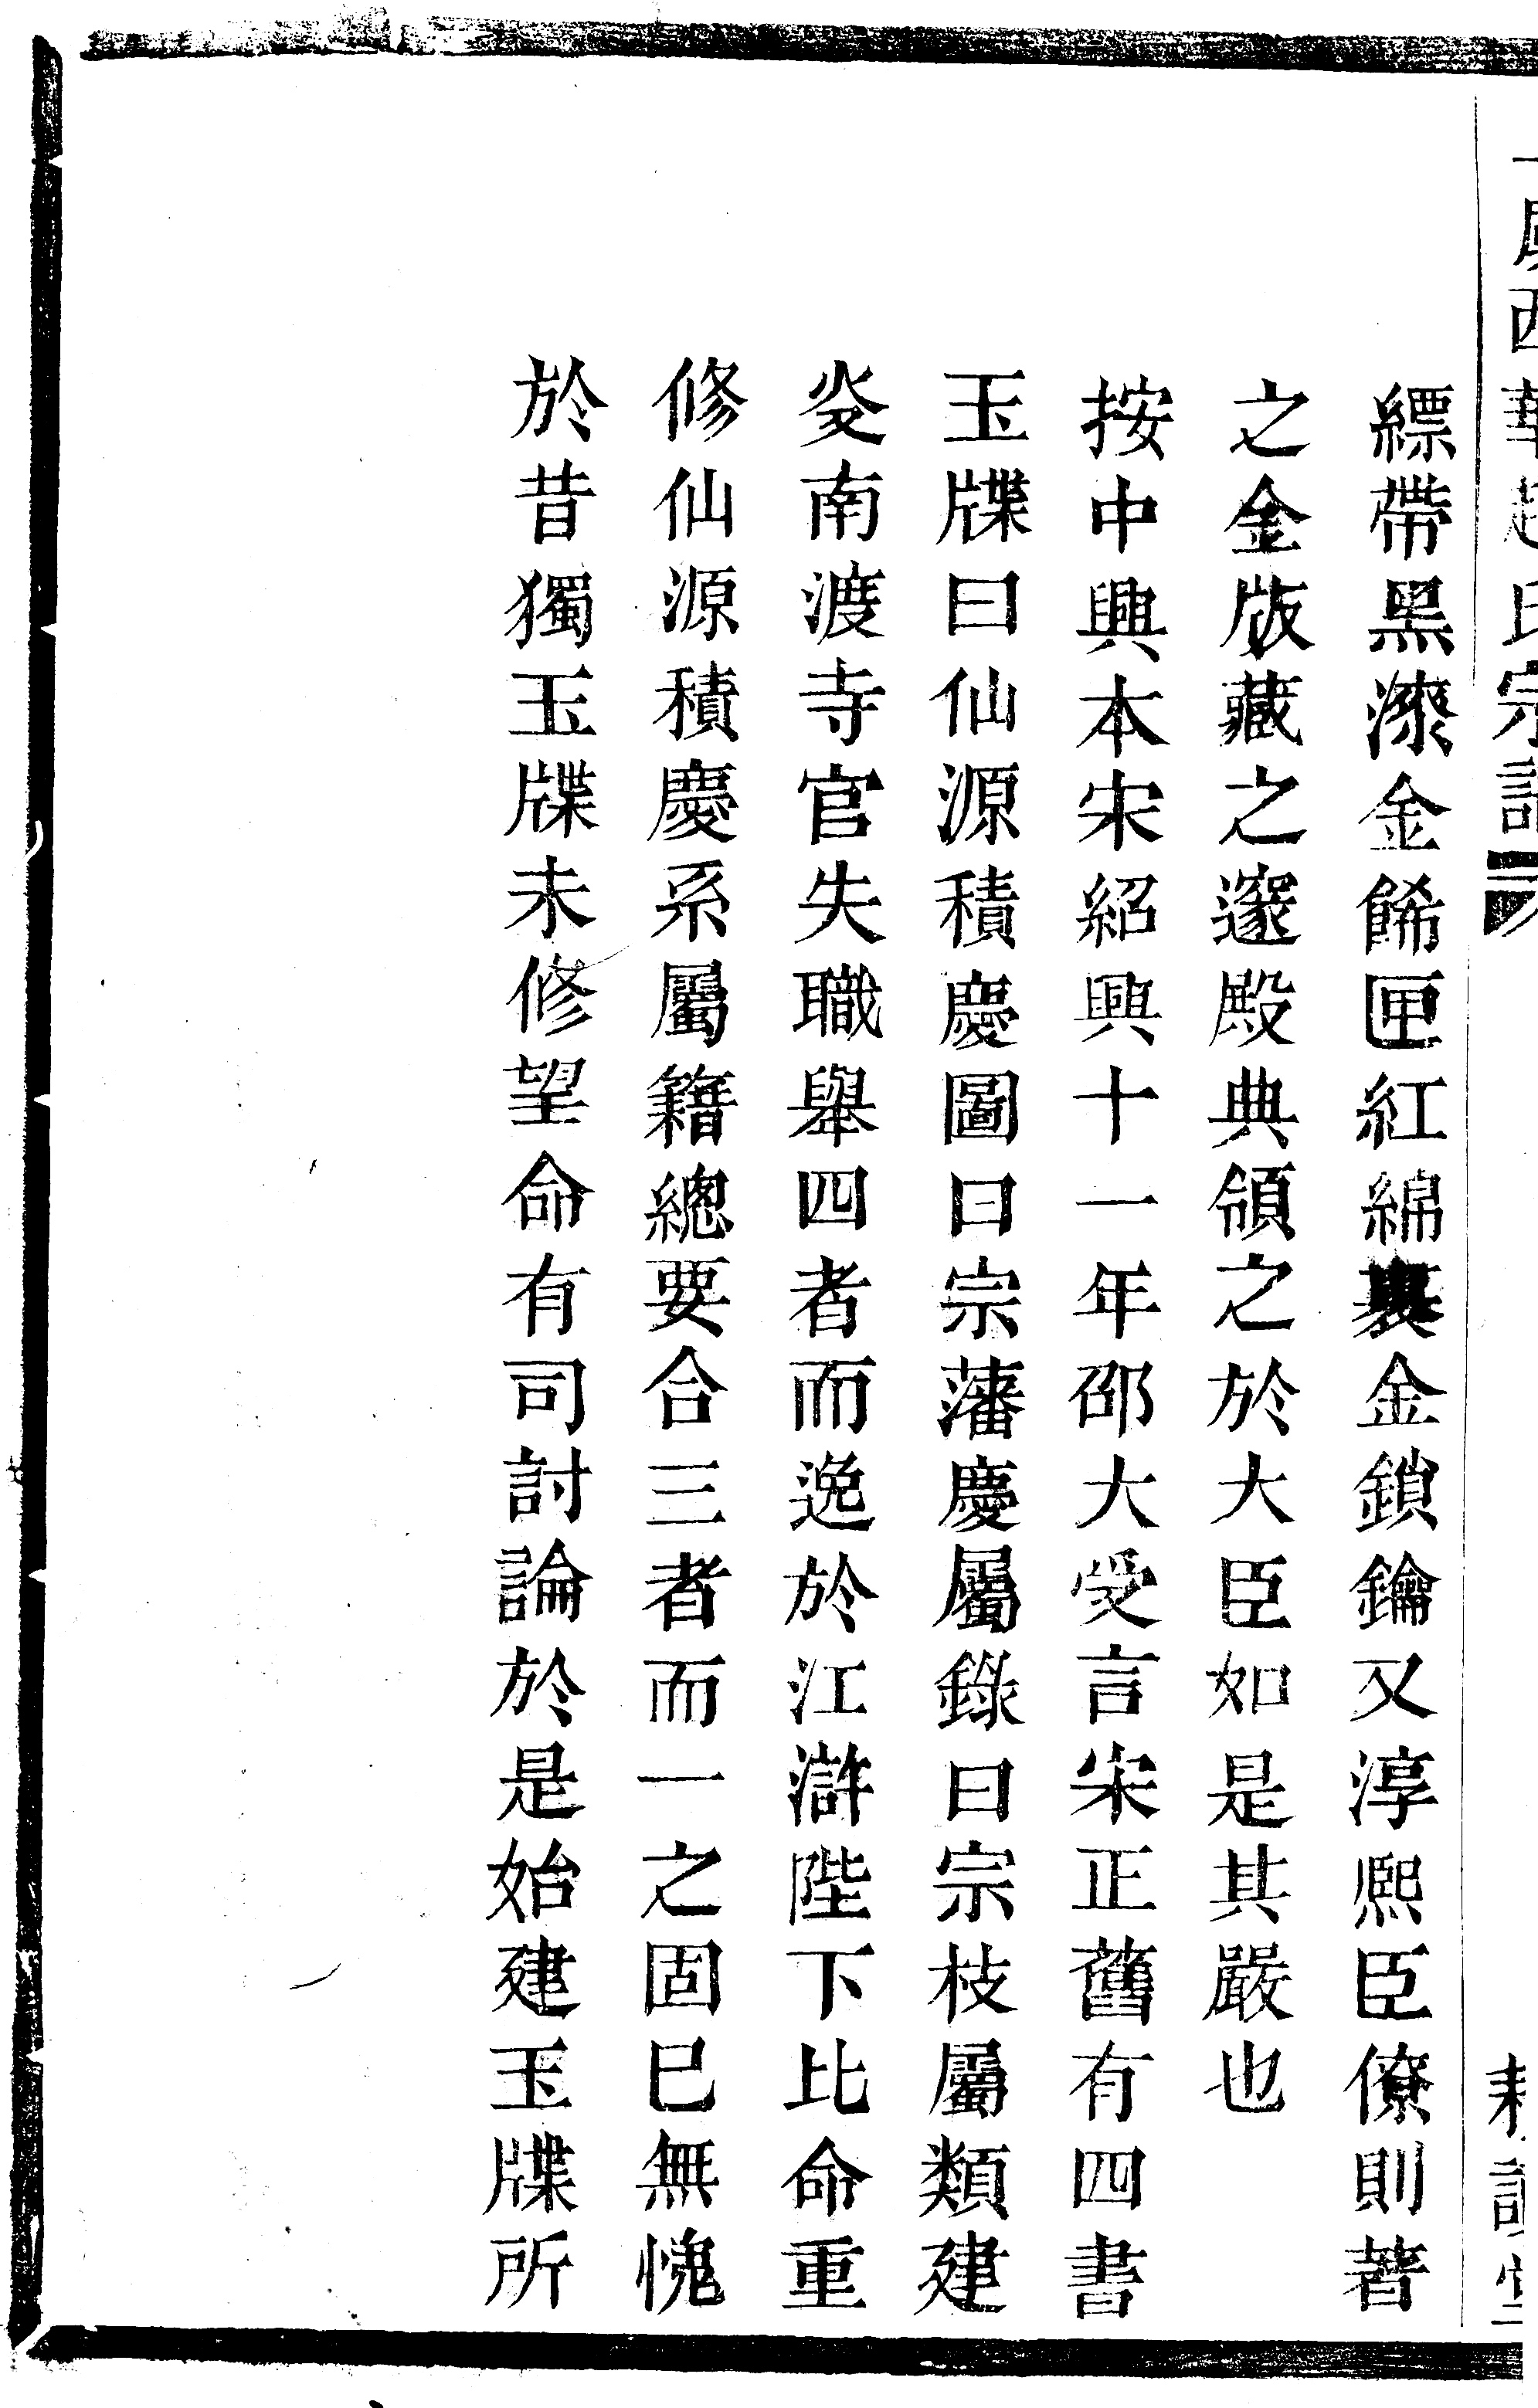 縹帶黑漆金餙匣紅綿裹金鎖鑰又淳熈臣僚則著
之金版藏之邃殿典領之於大臣如是其嚴也
按中興本宋紹興十一年邵大受言宋正舊有四書
玉牒曰仙源積慶圖曰宗藩慶屬錄曰宗枝屬類建
炎南渡寺官失職舉四者而逸於江滸陛下比命重
修仙源積慶系屬籍總要合三者而一之固已無愧
於昔獨玉牒未修望命有司討論於是始建玉牒所